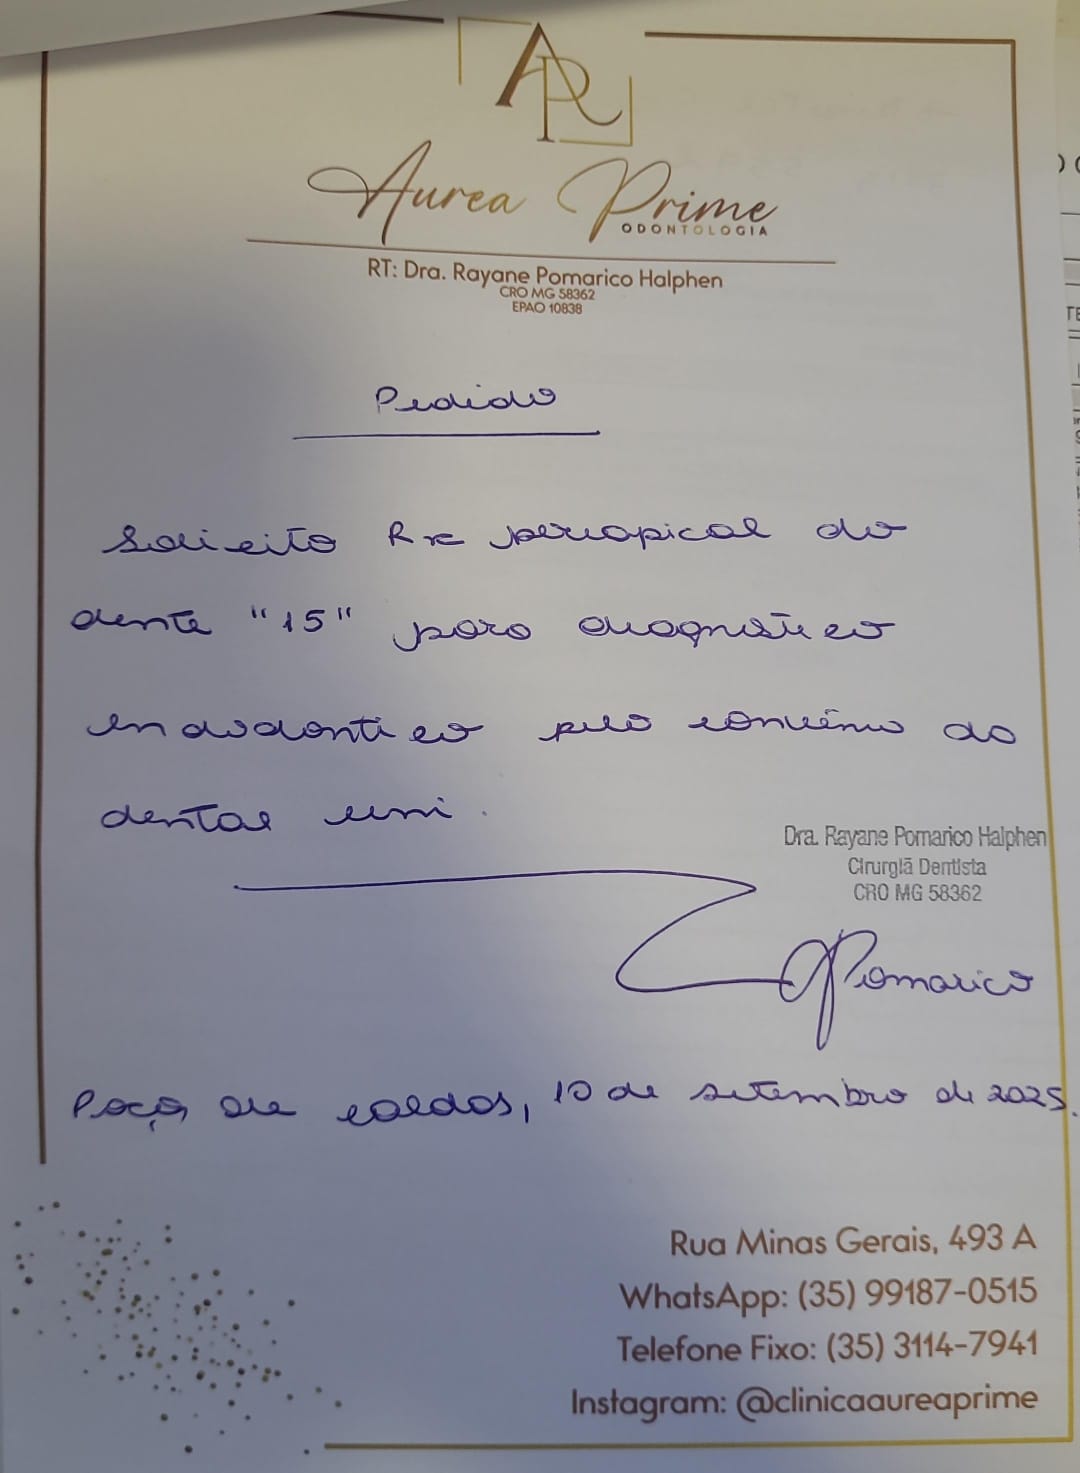 AP
Aurea Prime
ODONTOLOGIA
RT: Dra. Rayane Pomarico Halphen
CRO MG 58362
EPAO 10838
Pedido
Solicito Rx periapical do
dente "15" para diagnóstico
endodontico pelo convênio da
dental uni.
Dra. Rayane Pomarico Halphen
Cirurgiã Dentista
CRO MG 58362
RPomarico
Poços de caldas, 10 de setembro de 2025.
Rua Minas Gerais, 493 A
WhatsApp: (35) 99187-0515
Telefone Fixo: (35) 3114-7941
Instagram: @clinicaaureaprime